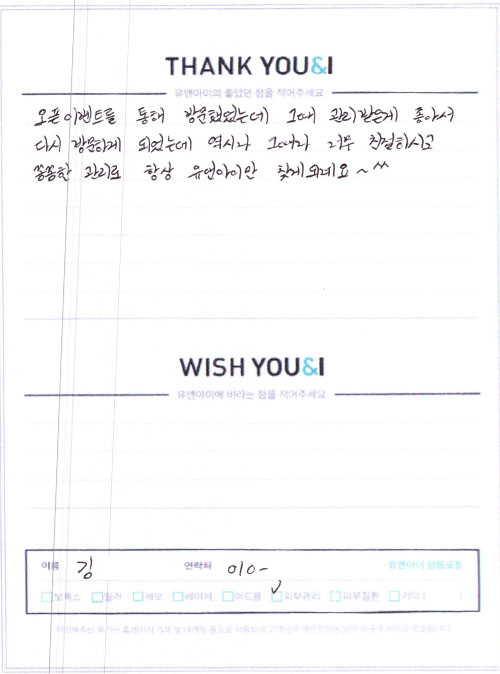 THANK YOU&I
유앤아이의 좋았던 점을 적어주세요
오픈이벤트를 통해 방문했었는데 그때 관리받은게 좋아서
다시 방문하게 되었는데 역시나 그때나 너무 친절하시고
꼼꼼한 관리로 항상 유앤아이만 찾게되네요~^^
WISH YOU&I
유앤아이에 바라는 점을 적어주세요
이름 김 연락처 010-
보톡스 필러 제모 레이저 여드름 ✓피부관리 피부질환 기타 ( )